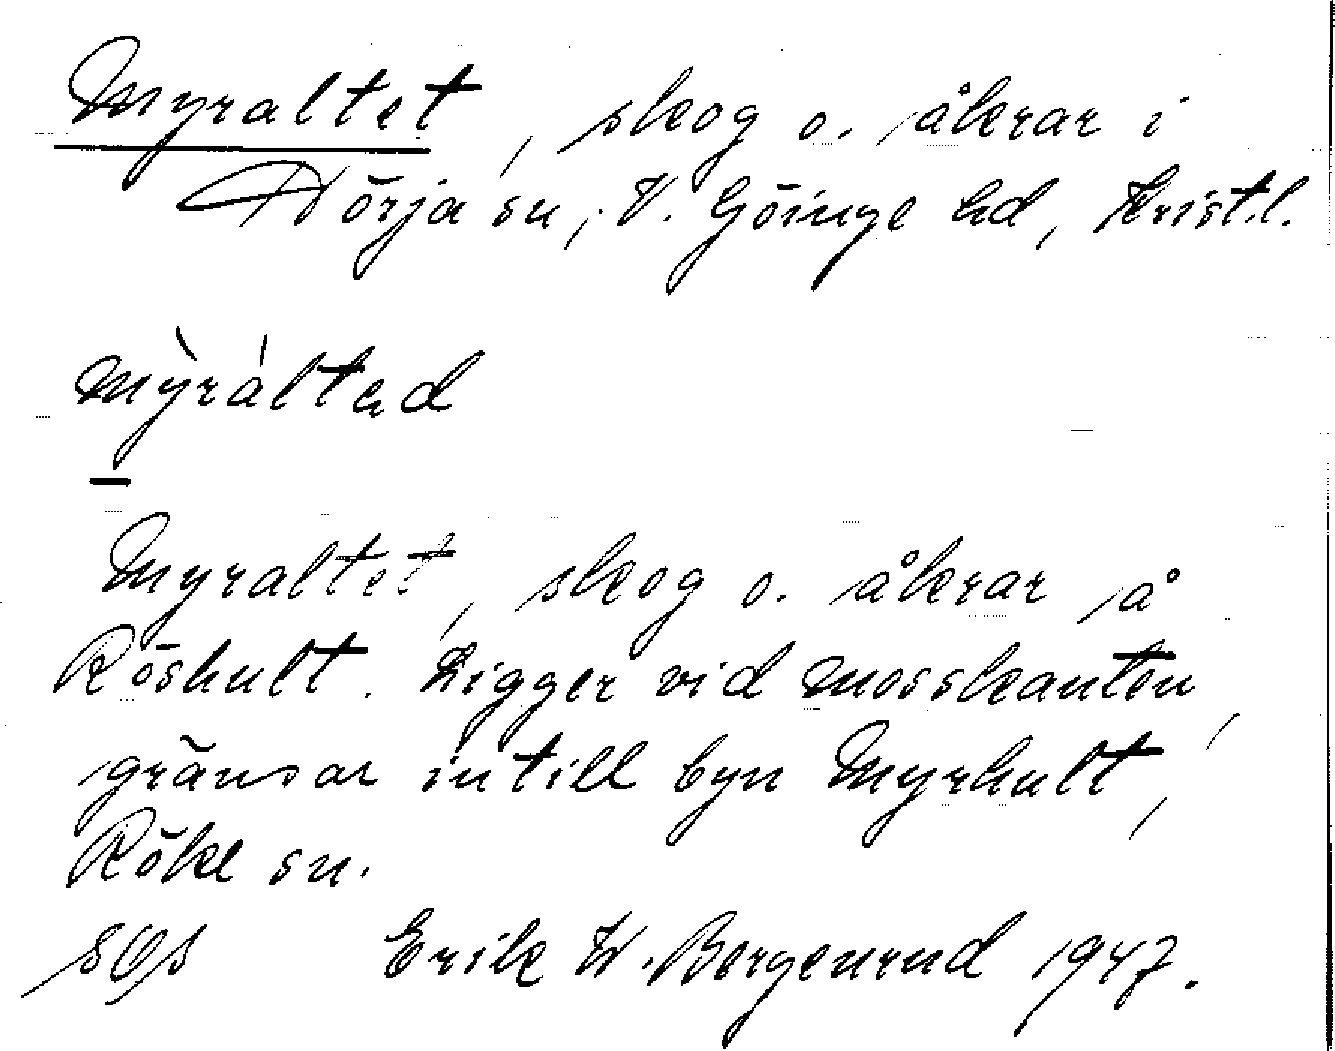 Myraltet, skog o. åkrar i
Nörja sn, V. Göinge hd, Krist.l.
mỳráltęd
Myraltet, skog o. åkrar å
Röshult. Ligger vid mosskanten,
gränsar intill byn Myrhult,
Röke sn.
Erik W. Bergenrud 1947.